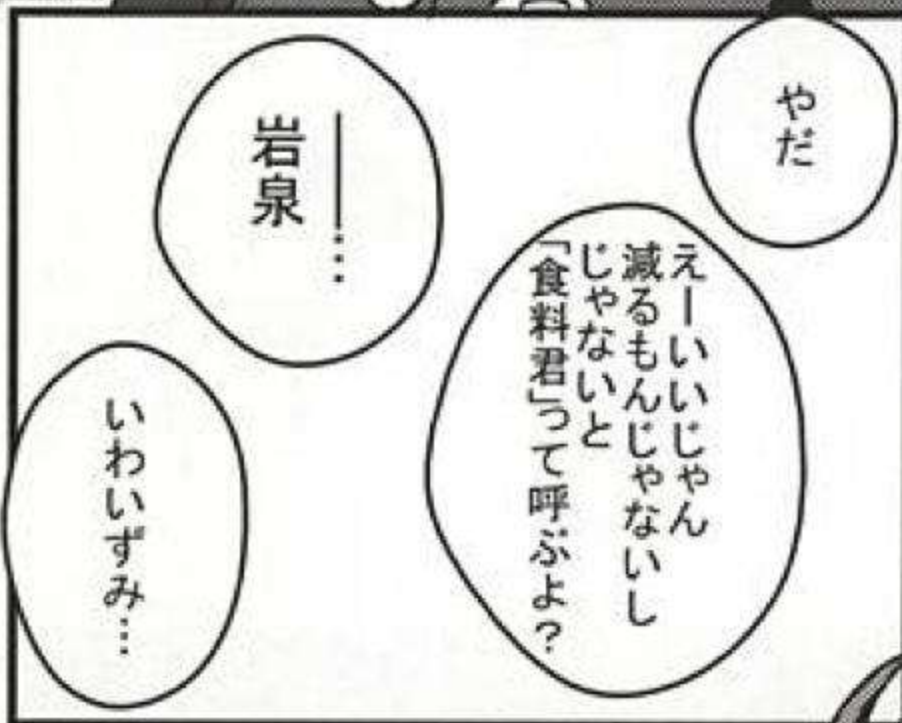 やだ
えーいいじゃん
減るもんじゃないし
じゃないと
「食料君」って呼ぶよ？
――…
岩泉
いわいずみ…